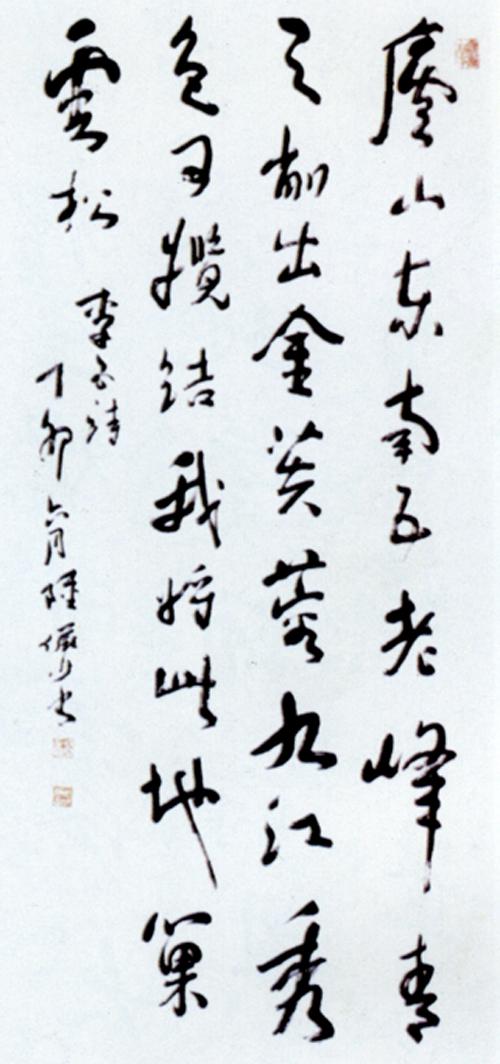 廬山東南五老峰青
天削出金芙蓉九江秀
色可攬結我將此地巢
雲松
李白詩
丁卯六月陸儼少書